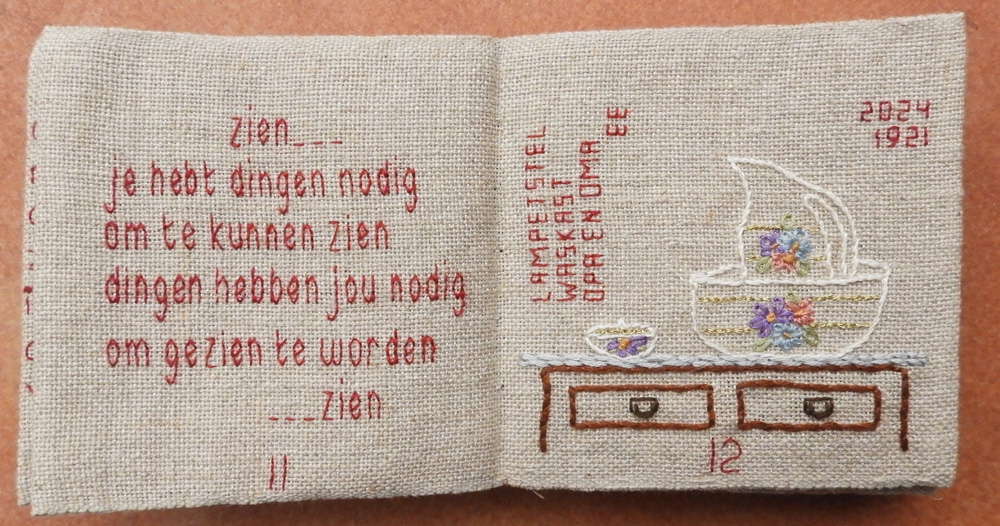 zien___
je hebt dingen nodig
om te kunnen zien
dingen hebben jou nodig
om gezien te worden
___zien
11
LAMPETSTEL
WASKAST
OPA EN OMA
EE
2024
1921
12